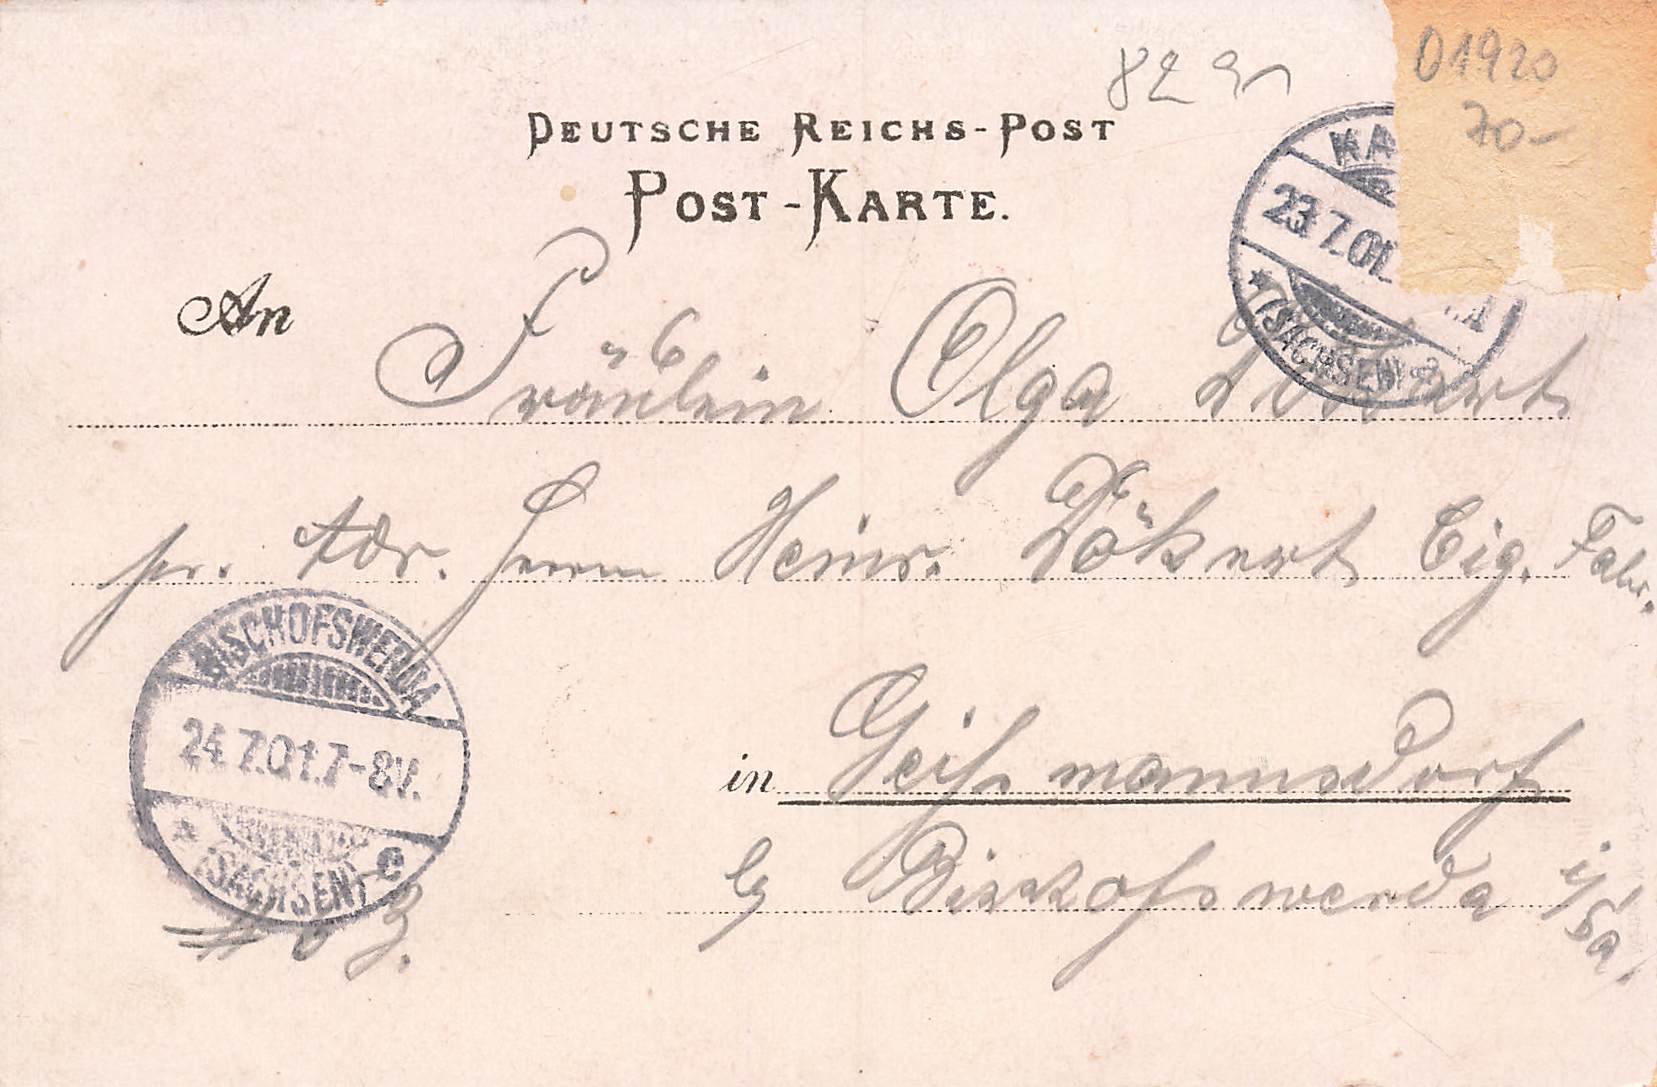 01920
70-
82
DEUTSCHE REICHS-POST
POST-KARTE.
KA
23.7.01.
*(SACHSEN)
An Fräulein Olga
pr. Adr. Herrn Heinr. Dökert Cig. Fabr.
BISCHOFSWERDA
24.7.01.7-8V.
* (SACHSEN) C
in Geißmannsdorf
b/ Bischofswerda i/Sa.